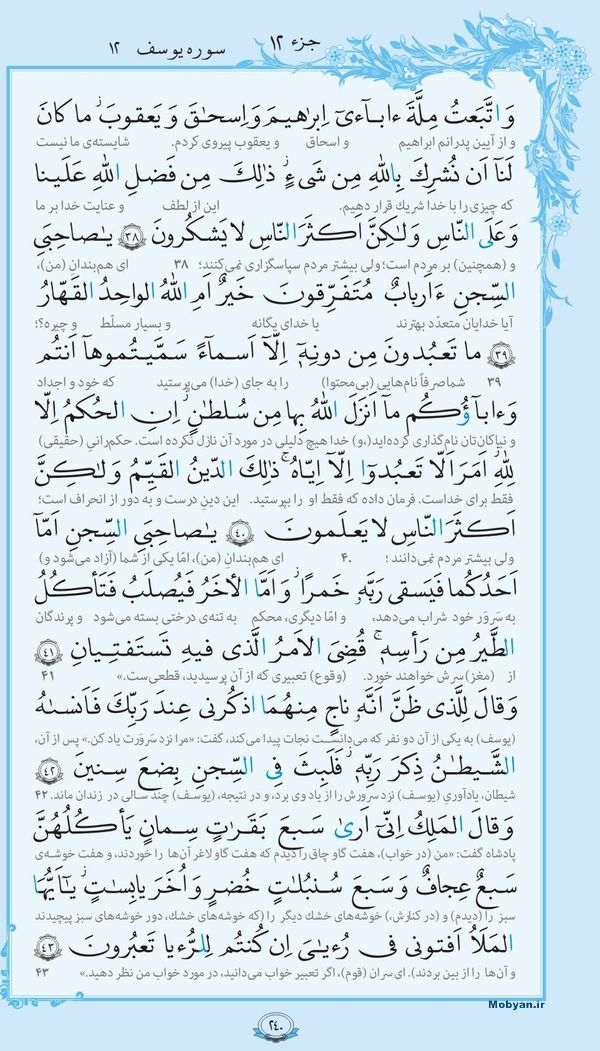 جزء ۱۲
سوره یوسف ۱۲
وَ اتَّبَعتُ مِلَّةَ ءابـآءىٓ اِبراهيمَ وَ اِسحـٰقَ وَ يَعقوبَ ۚ ما كانَ
و از آیین پدرانم ابراهیم و اسحاق و یعقوب پیروی کردم. شایسته‌ی ما نیست
لَنآ اَن نُشرِكَ بِاللّٰهِ مِن شَىءٍ ۚ ذٰلِكَ مِن فَضلِ اللّٰهِ عَلَينا
که چیزی را با خدا شریك قرار دهیم. این از لطف و عنایت خدا بر ما
وَ عَلَى النّاسِ وَلـٰكِنَّ اَكثَرَ النّاسِ لا يَشكُرونَ ﴿٣٨﴾ يـٰصاحِبَىِ
و (همچنین) بر مردم است؛ ولی بیشتر مردم سپاسگزاری نمی‌کنند؛ ۳۸ ای هم‌بندانِ (من)،
السِّجنِ ءَاَربابٌ مُتَفَرِّقونَ خَيرٌ اَمِ اللّٰهُ الواحِدُ القَهّارُ
آیا خدایان متعدّد بهترند یا خدای یگانه و بسیار مسلّط و چیره؟؛
﴿٣٩﴾ ما تَعبُدونَ مِن دونِهٖٓ اِلّآ اَسمآءً سَمَّيتُموهآ اَنتُم
۳۹ شما صرفاً نام‌هایی (بی‌محتوا) را به جای (خدا) می‌پرستید که خود و اجداد
وَ ءابآؤُكُم مآ اَنزَلَ اللّٰهُ بِها مِن سُلطـٰنٍ ۚ اِنِ الحُكمُ اِلّا
و نیاکان‌تان نام‌گذاری کرده‌اید (،و) خدا هیچ دلیلی در مورد آن نازل نکرده است. حکم‌رانیِ (حقیقی)
لِلّٰهِ ۚ اَمَرَ اَلّا تَعبُدوٓا اِلّآ اِيّاهُ ۚ ذٰلِكَ الدّينُ القَيِّمُ وَلـٰكِنَّ
فقط برای خداست. فرمان داده که فقط او را بپرستید. این دینِ درست و به دور از انحراف است؛
اَكثَرَ النّاسِ لا يَعلَمونَ ﴿٤٠﴾ يـٰصاحِبَىِ السِّجنِ اَمّآ
ولی بیشتر مردم نمی‌دانند؛ ۴۰ ای هم‌بندانِ (من)، امّا یکی از شما (آزاد می‌شود و)
اَحَدُكُما فَيَسقى رَبَّهٗ خَمرًا ۖ وَ اَمَّا الاٰخَرُ فَيُصلَبُ فَتَأكُلُ
به سَروَر خود شراب می‌دهد، و امّا دیگری، محکم به تنه‌ی درختی بسته می‌شود و پرندگان
الطَّيرُ مِن رَأسِهٖ ۚ قُضِىَ الاَمرُ الَّذى فيهِ تَستَفتِيانِ ﴿٤١﴾
از (مغز) سرش خواهند خورد. (وقوع) تعبیری که از آن پرسیدید، قطعی‌ست.» ۴۱
وَ قالَ لِلَّذى ظَنَّ اَنَّهٗ ناجٍ مِنهُمَا اذكُرنى عِندَ رَبِّكَ فَاَنسـٰهُ
(یوسف) به یکی از آن دو نفر که می‌دانست نجات پیدا می‌کند، گفت: «مرا نزد سَروَرت یاد کن.» پس از آن،
الشَّيطـٰنُ ذِكرَ رَبِّهٖ فَلَبِثَ فِى السِّجنِ بِضعَ سِنينَ ﴿٤٢﴾
شیطان، یادآوریِ (یوسف) نزد سرورش را از یاد وی برد، و در نتیجه، (یوسف) چند سالی در زندان ماند. ۴۲
وَ قالَ المَلِكُ اِنّىٓ اَرىٰ سَبعَ بَقَرٰتٍ سِمانٍ يَأكُلُهُنَّ
پادشاه گفت: «من (در خواب)، هفت گاو چاق را دیدم که هفت گاو لاغر آن‌ها را خوردند، و هفت خوشه‌ی
سَبعٌ عِجافٌ وَ سَبعَ سُنبُلـٰتٍ خُضرٍ وَ اُخَرَ يابِسـٰتٍ ۖ يـٰٓاَيُّهَا
سبز را (دیدم) و (در کنارش،) خوشه‌های خشك دیگر را (که خوشه‌های خشك، دور خوشه‌های سبز پیچیدند
المَلَاُ اَفتونى فى رُءيـٰىَ اِن كُنتُم لِلرُّءيا تَعبُرونَ ﴿٤٣﴾
و آن‌ها را از بین بردند). ای سران (قوم)، اگر تعبیر خواب می‌دانید، در مورد خواب من نظر دهید.» ۴۳
Mobyan.ir
۲۴۰